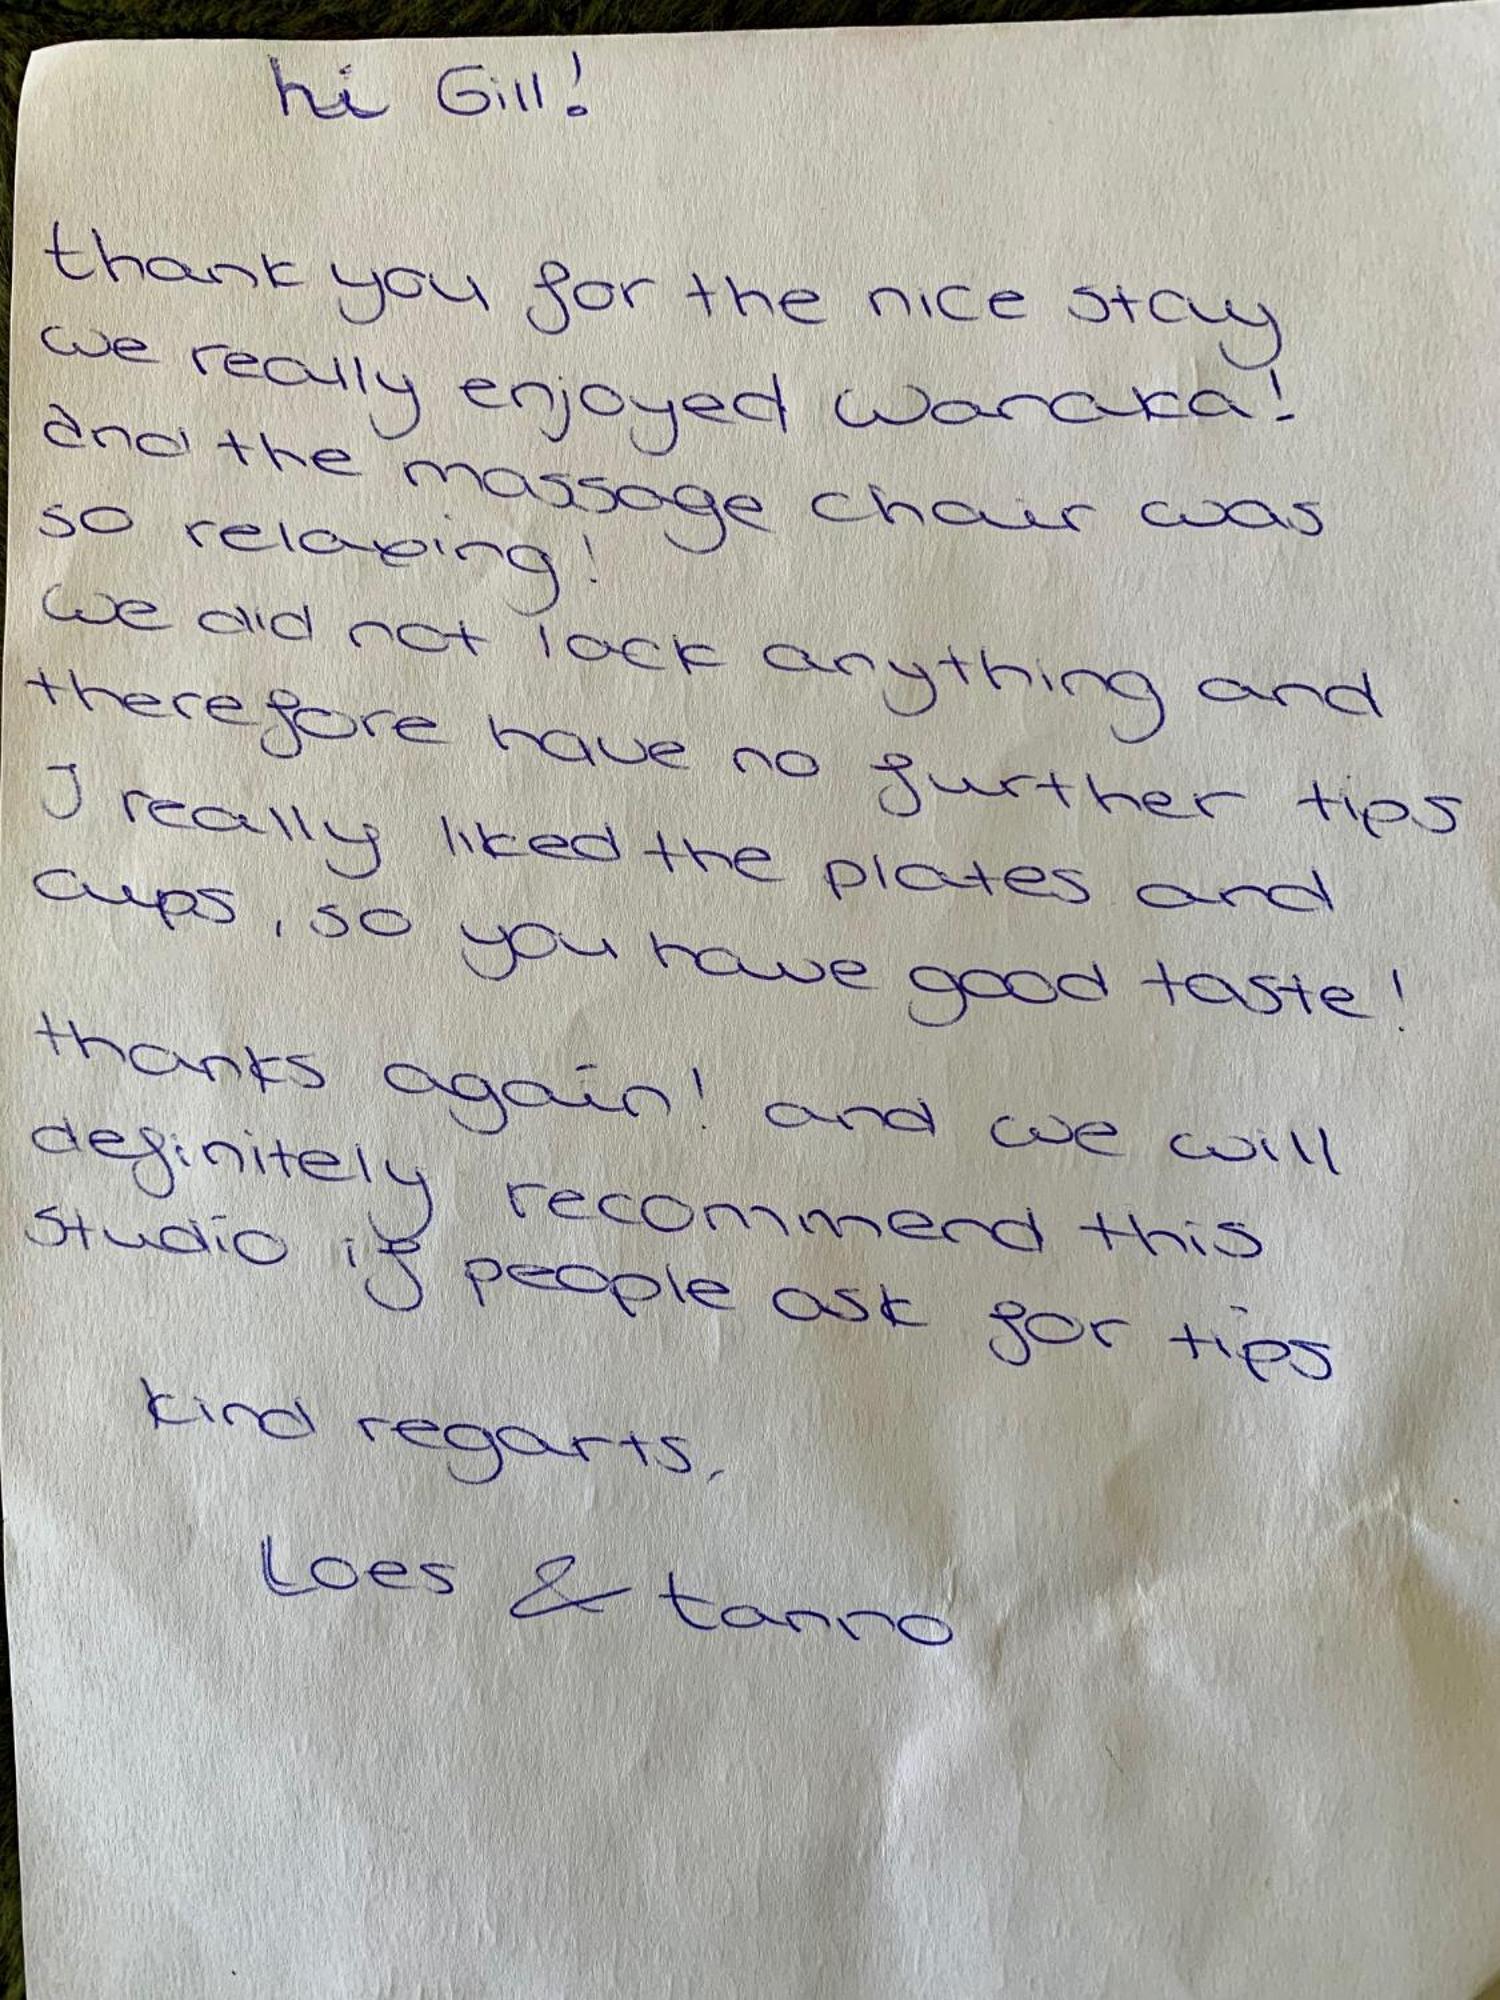 hi Gill!
thank you for the nice stay
we really enjoyed Wanaka!
and the massage chair was
so relaxing!
we did not lack anything and
therefore have no further tips
I really liked the plates and
cups, so you have good taste!
thanks again! and we will
definitely recommend this
studio if people ask for tips
kind regarts,
Loes & tanno